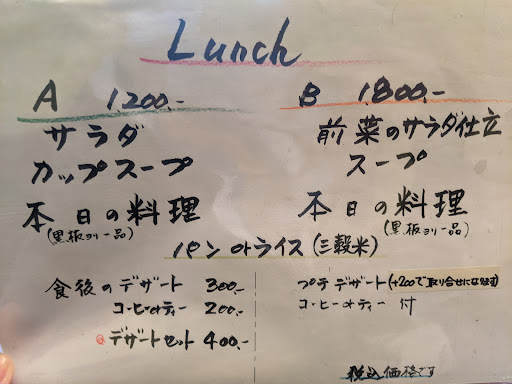 Lunch
A 1.200.-
サラダ
カップスープ
本日の料理
(黒板ヨリ一品)
B 1.800.-
前菜のサラダ仕立
スープ
本日の料理
(黒板ヨリ一品)
パン or ライス (三穀米)
食後のデザート 300.-
コーヒー or ティー 200.-
デザートセット 400.-
プチデザート (+200で取り合せになります)
コーヒー or ティー 付
税込価格です